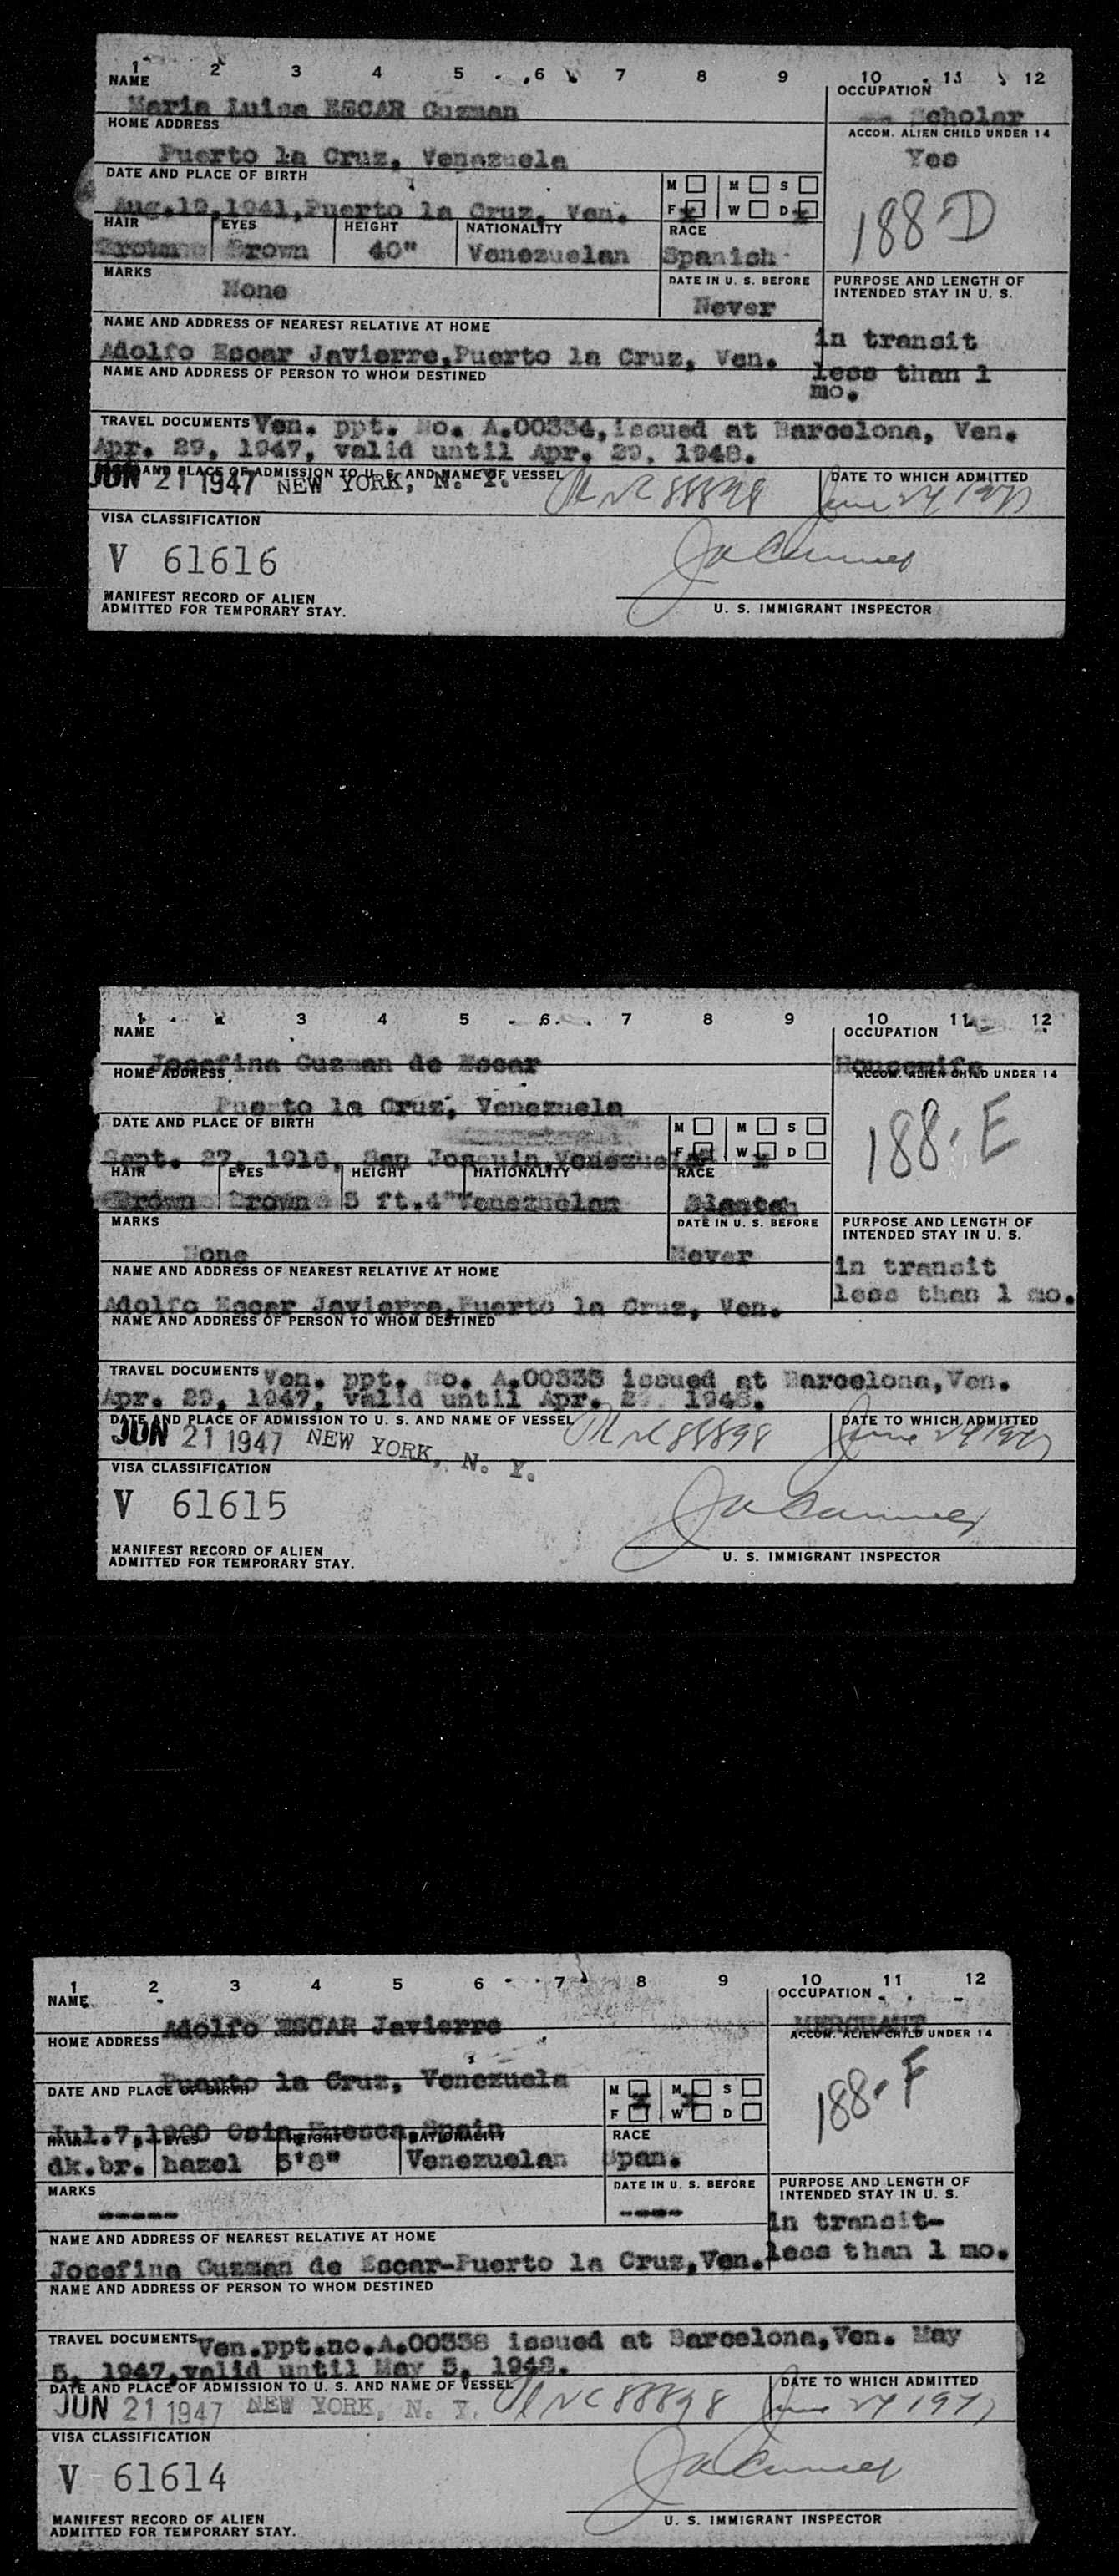 1 2 3 4 5 6 7 8 9 10 11 12
NAME OCCUPATION
Maria Luisa ESCAR Guzman Scholar
HOME ADDRESS ACCOM. ALIEN CHILD UNDER 14
Puerto la Cruz, Venezuela Yes
DATE AND PLACE OF BIRTH M M S
Aug.19,1941,Puerto la Cruz, Ven. F W D
188-D
HAIR EYES HEIGHT NATIONALITY RACE
Brown Brown 40" Venezuelan Spanish
MARKS DATE IN U. S. BEFORE PURPOSE AND LENGTH OF INTENDED STAY IN U. S.
None Never
NAME AND ADDRESS OF NEAREST RELATIVE AT HOME in transit
Adolfo Escar Javierre,Puerto la Cruz, Ven.
NAME AND ADDRESS OF PERSON TO WHOM DESTINED less than 1 mo.
TRAVEL DOCUMENTS Ven. ppt. No. A.00334,issued at Barcelona, Ven.
Apr. 29, 1947, valid until Apr. 29, 1948.
DATE AND PLACE OF ADMISSION TO U. S. AND NAME OF VESSEL DATE TO WHICH ADMITTED
JUN 21 1947 NEW YORK, N. Y. NC 88898 June 24 1947
VISA CLASSIFICATION
V 61616
MANIFEST RECORD OF ALIEN
ADMITTED FOR TEMPORARY STAY. U. S. IMMIGRANT INSPECTOR
1 2 3 4 5 6 7 8 9 10 11 12
NAME OCCUPATION
Josefina Guzman de Escar Housewife
HOME ADDRESS ACCOM. ALIEN CHILD UNDER 14
Puerto la Cruz, Venezuela
188-E
DATE AND PLACE OF BIRTH M M S
Sept. 27, 1916, San Joaquin Venezuela F W D
HAIR EYES HEIGHT NATIONALITY RACE
Brown Brown 5 ft.4" Venezuelan
MARKS DATE IN U. S. BEFORE PURPOSE AND LENGTH OF INTENDED STAY IN U. S.
None Never in transit
NAME AND ADDRESS OF NEAREST RELATIVE AT HOME less than 1 mo.
Adolfo Escar Javierre,Puerto la Cruz, Ven.
NAME AND ADDRESS OF PERSON TO WHOM DESTINED
TRAVEL DOCUMENTS Ven. ppt. No. A.00333 issued at Barcelona,Ven.
Apr. 29, 1947, valid until Apr. 29, 1948.
DATE AND PLACE OF ADMISSION TO U. S. AND NAME OF VESSEL DATE TO WHICH ADMITTED
JUN 21 1947 NEW YORK, N. Y. NC 88898 June 24 1947
VISA CLASSIFICATION
V 61615
MANIFEST RECORD OF ALIEN
ADMITTED FOR TEMPORARY STAY. U. S. IMMIGRANT INSPECTOR
1 2 3 4 5 6 7 8 9 10 11 12
NAME OCCUPATION
Adolfo ESCAR Javierre MERCHANT
HOME ADDRESS ACCOM. ALIEN CHILD UNDER 14
Puerto la Cruz, Venezuela
188-F
DATE AND PLACE OF BIRTH M M S
Jul.7,1900 Osia Huesca,Spain F W D
HAIR EYES HEIGHT NATIONALITY RACE
dk.br. hazel 5'8" Venezuelan Span.
MARKS DATE IN U. S. BEFORE PURPOSE AND LENGTH OF INTENDED STAY IN U. S.
----- ---- in transit-
NAME AND ADDRESS OF NEAREST RELATIVE AT HOME
Josefina Guzman de Escar-Puerto la Cruz,Ven. less than 1 mo.
NAME AND ADDRESS OF PERSON TO WHOM DESTINED
TRAVEL DOCUMENTS Ven.ppt.no.A.00338 issued at Barcelona,Ven. May
5, 1947,valid until May 5, 1948.
DATE AND PLACE OF ADMISSION TO U. S. AND NAME OF VESSEL DATE TO WHICH ADMITTED
JUN 21 1947 NEW YORK, N. Y. NC 88898 June 24 1947
VISA CLASSIFICATION
V 61614
MANIFEST RECORD OF ALIEN
ADMITTED FOR TEMPORARY STAY. U. S. IMMIGRANT INSPECTOR